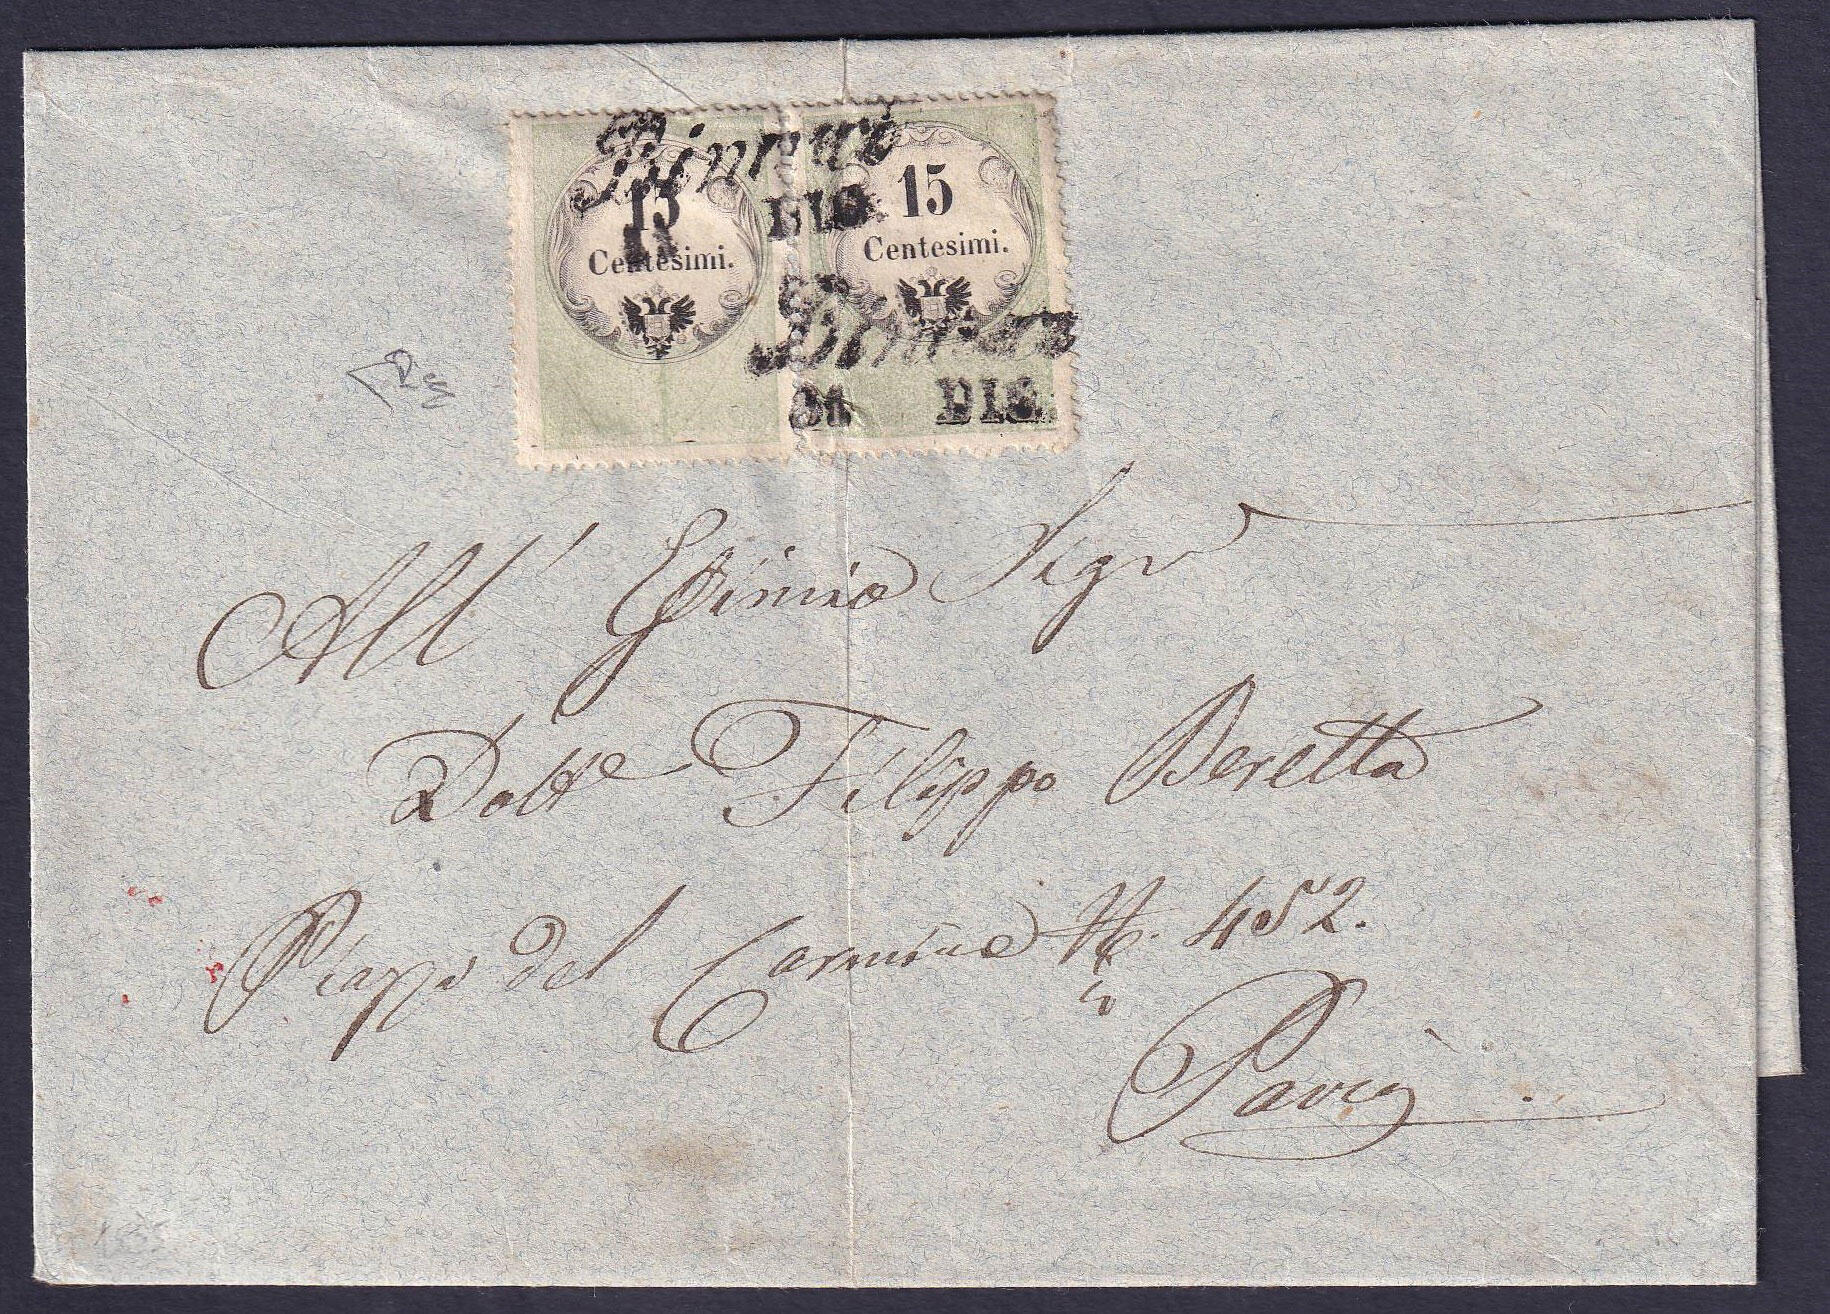 15 Centesimi.
15 Centesimi.
DIC.
31 DIC.
All' Sigr
Dotte Filippo Beretta
Piazza del Carmine N. 452.
Pavia